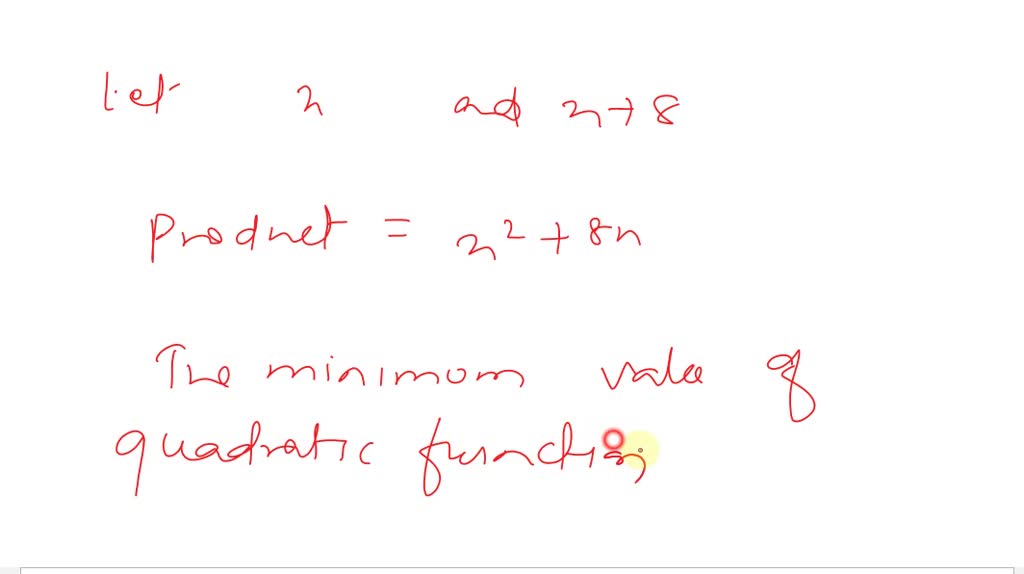 Let x and x+8
Product = x² + 8x
The minimum value of
quadratic function